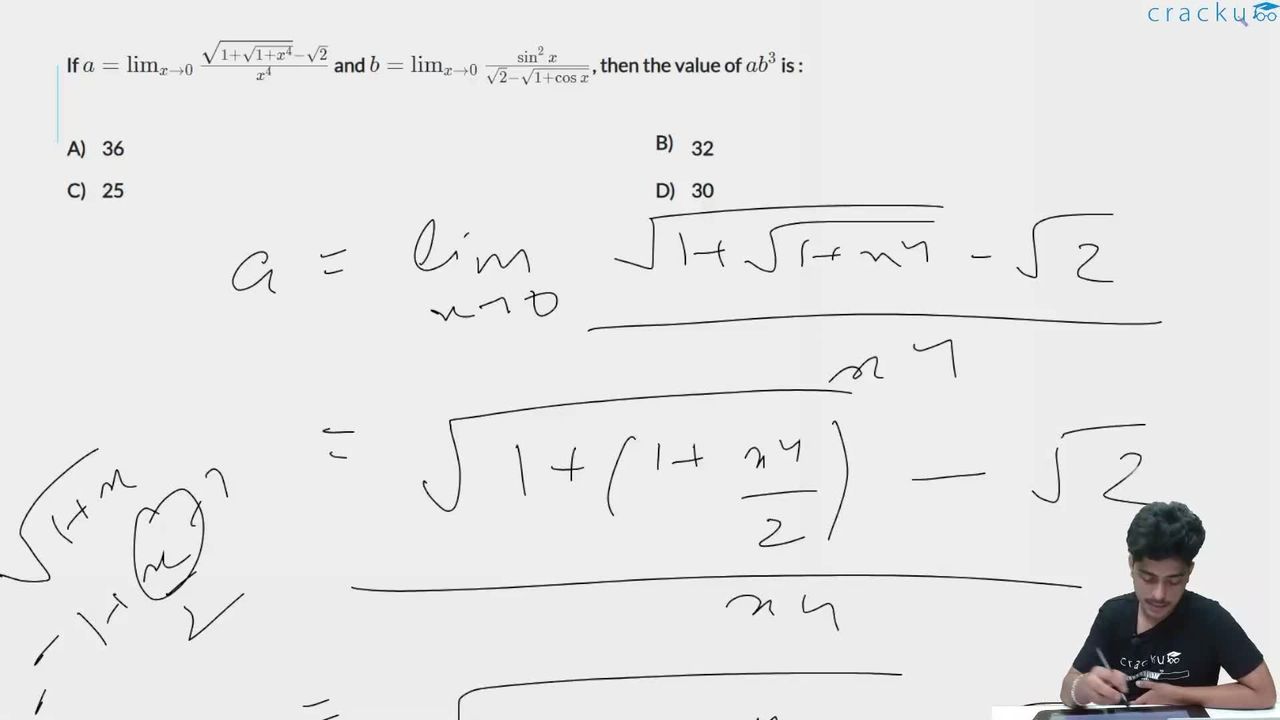 cracku
If $a = \lim_{x\to 0} \frac{\sqrt{1+\sqrt{1+x^4}}-\sqrt{2}}{x^4}$ and $b = \lim_{x\to 0} \frac{\sin^2 x}{\sqrt{2}-\sqrt{1+\cos x}}$, then the value of $ab^3$ is :
A) 36
B) 32
C) 25
D) 30
$a = \lim_{x\to 0} \frac{\sqrt{1+\sqrt{1+x^4}} - \sqrt{2}}{x^4}$
$= \frac{\sqrt{1+\left(1+\frac{x^4}{2}\right)} - \sqrt{2}}{x^4}$
$\sqrt{1+x}$
$1+\frac{x}{2}$
=
cracku